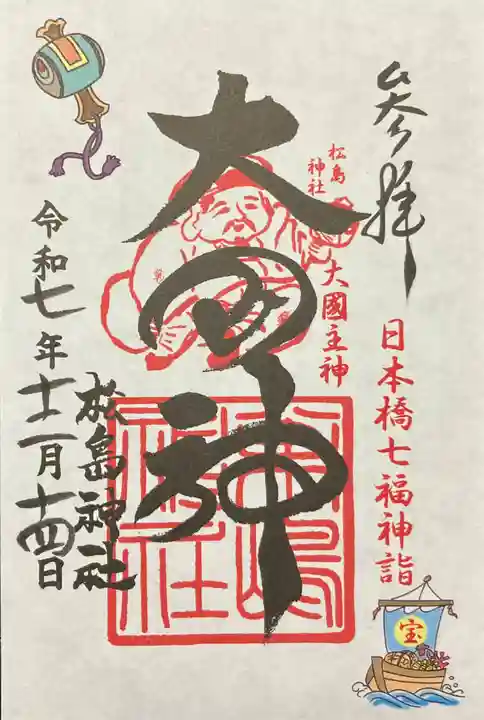 参拝
日本橋七福神詣
松島神社
大國主神
大国神
松島神社
松島神社
令和七年十二月十四日
宝